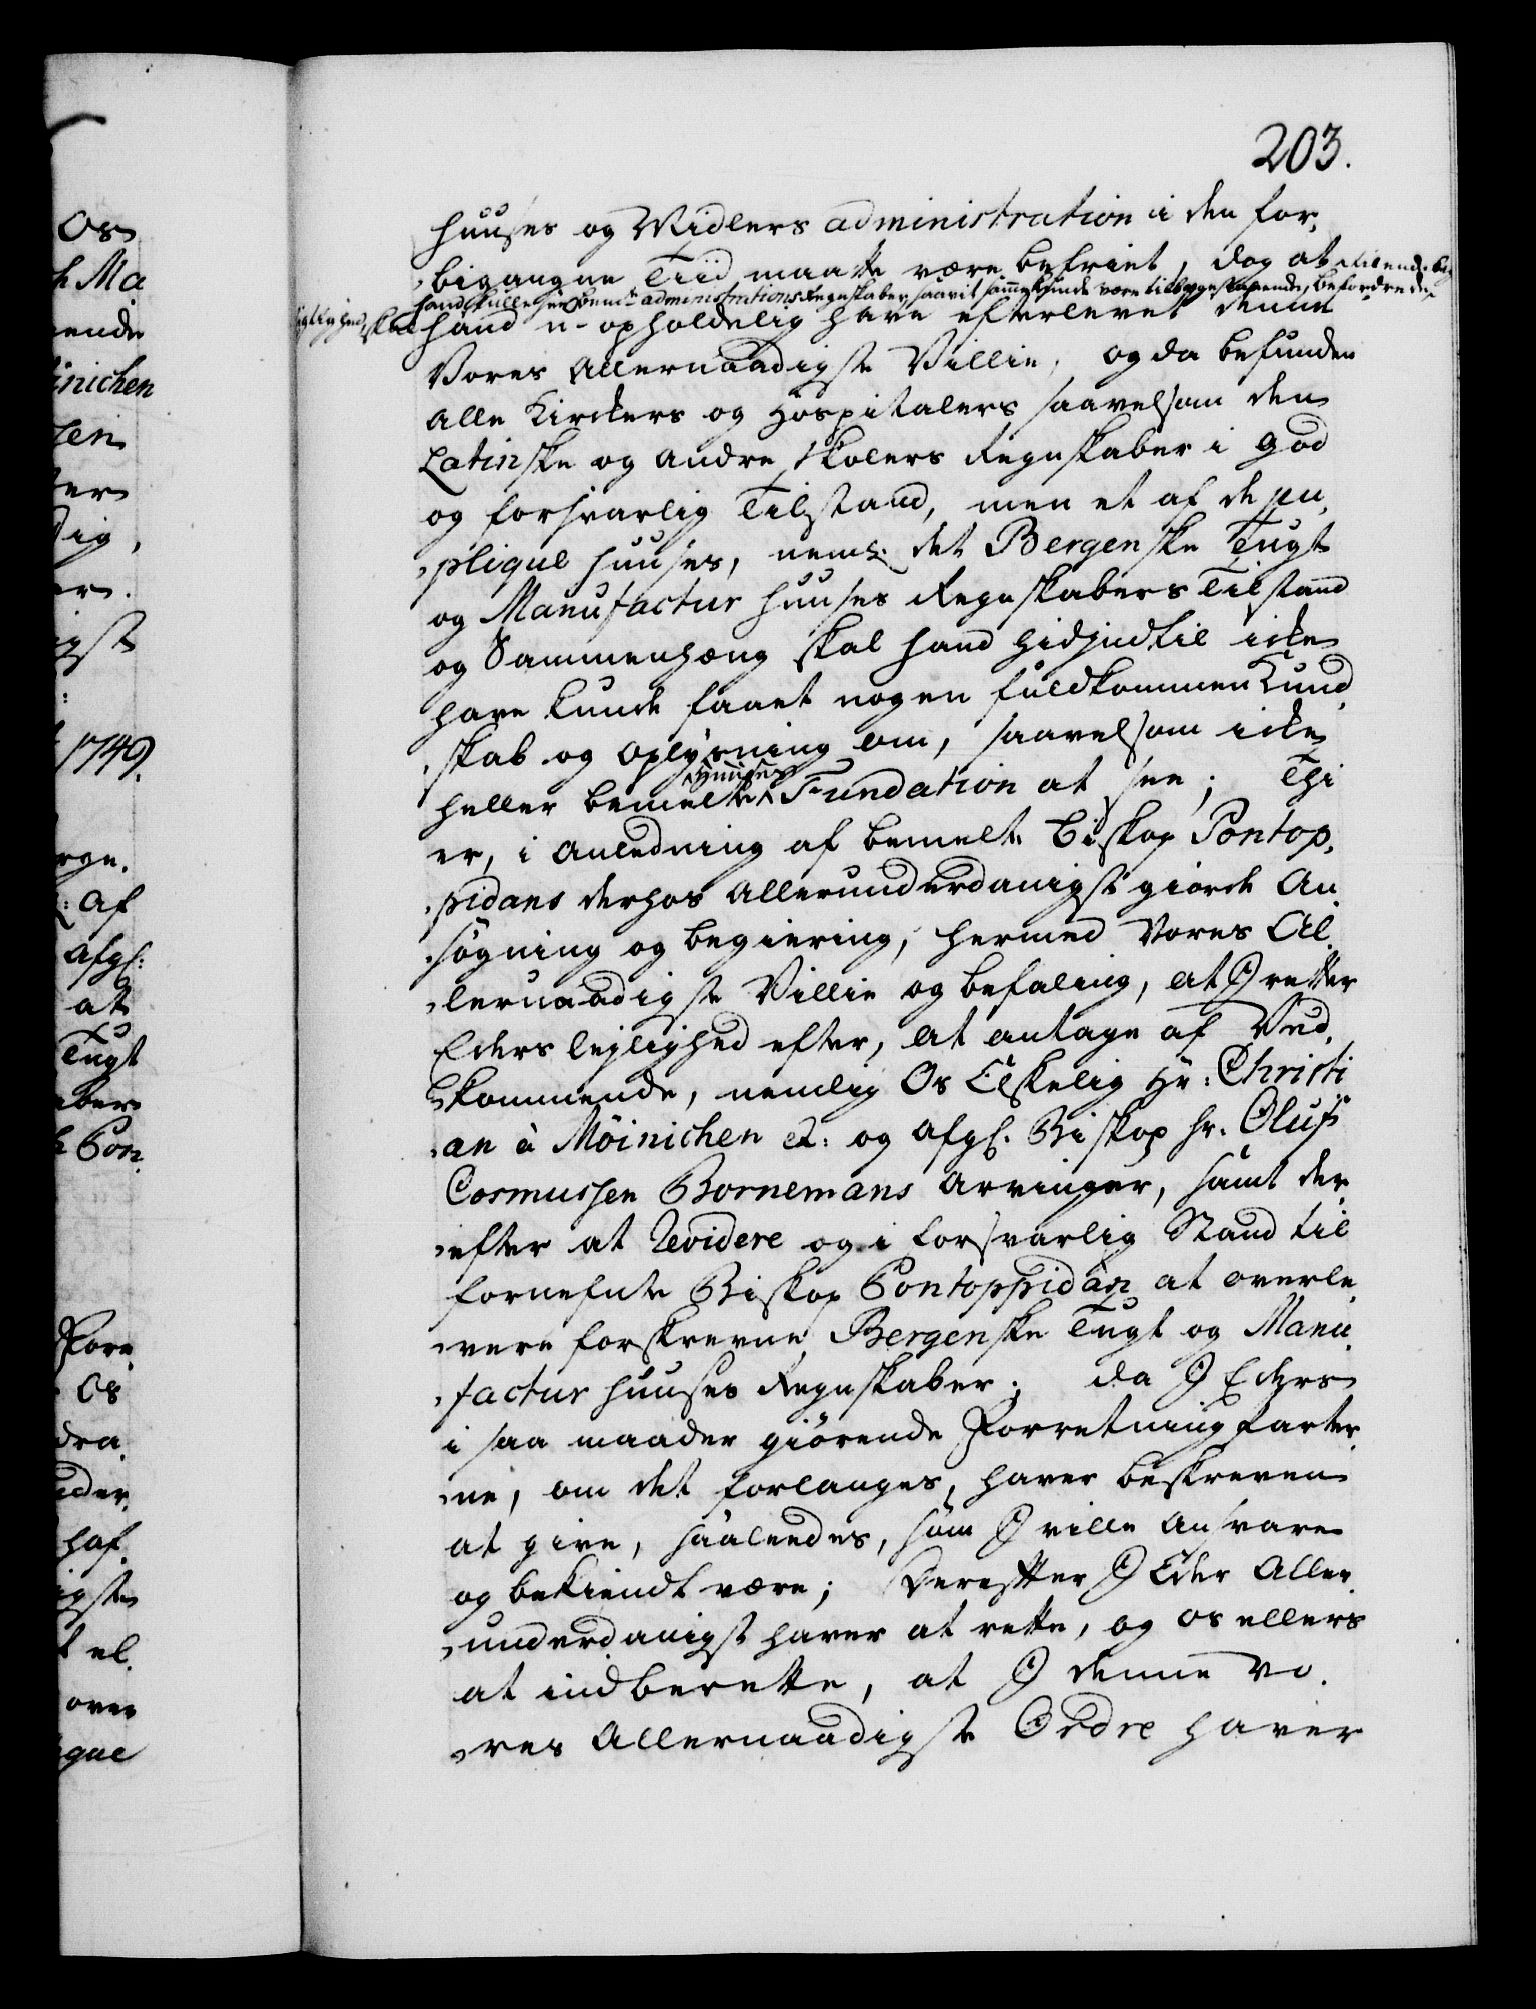 203.
huuses og Midlers administration i den for,
bigangne Tiid maatte være befriet, dog at
hand skulle hendhente administrations Regnskaber, saavit samme kunde være tilbage staaende, befordre
hand u-opholdelig have efterlevet denne
Vores Allernaadigste Villie, og da befunden
alle Kirckers og Hospitalers saavelsom den
Latinske og andre Skolers Regnskaber i god
og forsvarlig Tilstand, men et af de pu,
plique Huuses, neml. det Bergenske Tugt
og Manufactur Huuses Regnskabers Tilstand
og Sammenhæng skal hand hidindtil icke
have kunde faaet nogen fuldkommen Kund,
skab og Oplysning om, saavelsom icke
Huuses
heller bemelte Fundation at see; Thi
er, i anledning af bemelte Biskop Pontop,
pidans derhos allerunderdanigst giorde An,
søgning og begiering, hermed Vores Al,
lernaadigste Villie og befaling, at I retter
Eders lejlighed efter, at antage af Ved,
kommende, nemlig Os Elskelig Hr: Christi
an à Möinichen etc: og afgl. Biskop Hr. Oluf
Cosmussen Bornemans Arvinger, samt der,
efter at Revidere og i forsvarlig Stand til
fornefnte Biskop Pontoppidan at overle,
vere forskrevne Bergenske Tugt og Manu,
factur Huuses Regnskaber; da I Eders
i saa maader giørende Forretning Parter,
ne, om det forlanges, haver beskreven
at give, saaledes, som I ville ansvare
og bekiendt være; Derefter I Eder Aller,
underdanigst haver at rette, og os ellers
at indberette, at I denne Vo,
res Allernaadigste Ordre haver